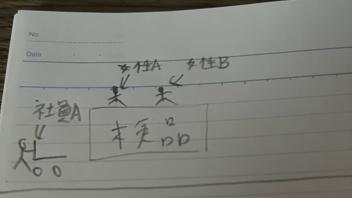 No.
Date
女性A 女性B
社員A
検品